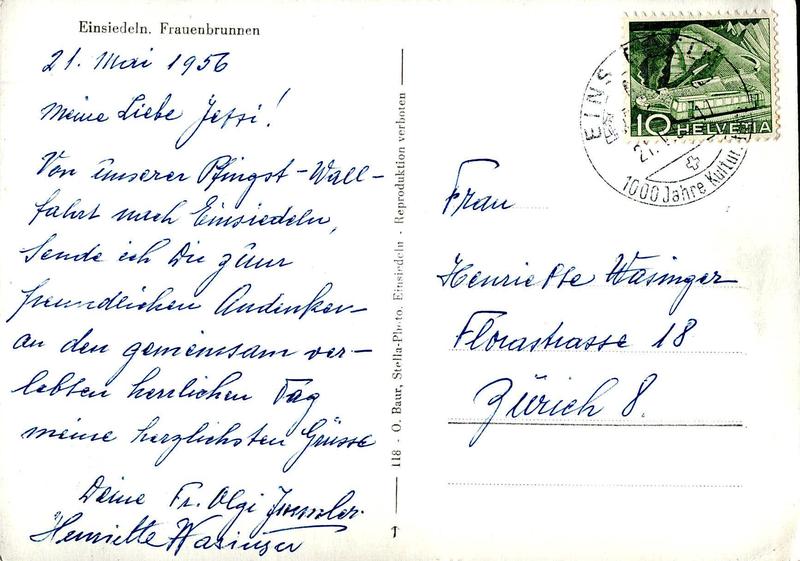 Einsiedeln. Frauenbrunnen
21. Mai 1956
Meine Liebe Jessi!
Von unserer Pfingst-Wall-
fahrt nach Einsiedeln,
sende ich Die zum
freundlichen Andenken-
an den gemeinsam ver-
lebten herrlichen Tag
meine herzlichsten Grüsse
Deine Fr. Olgi
Henriette Wasinger
118 - O. Baur, Stella-Photo, Einsiedeln - Reproduktion verboten
10 HELVETIA
EINS
1000 Jahre Kultur
Frau
Henriette Wasinger
Florastrasse 18
Zürich 8.